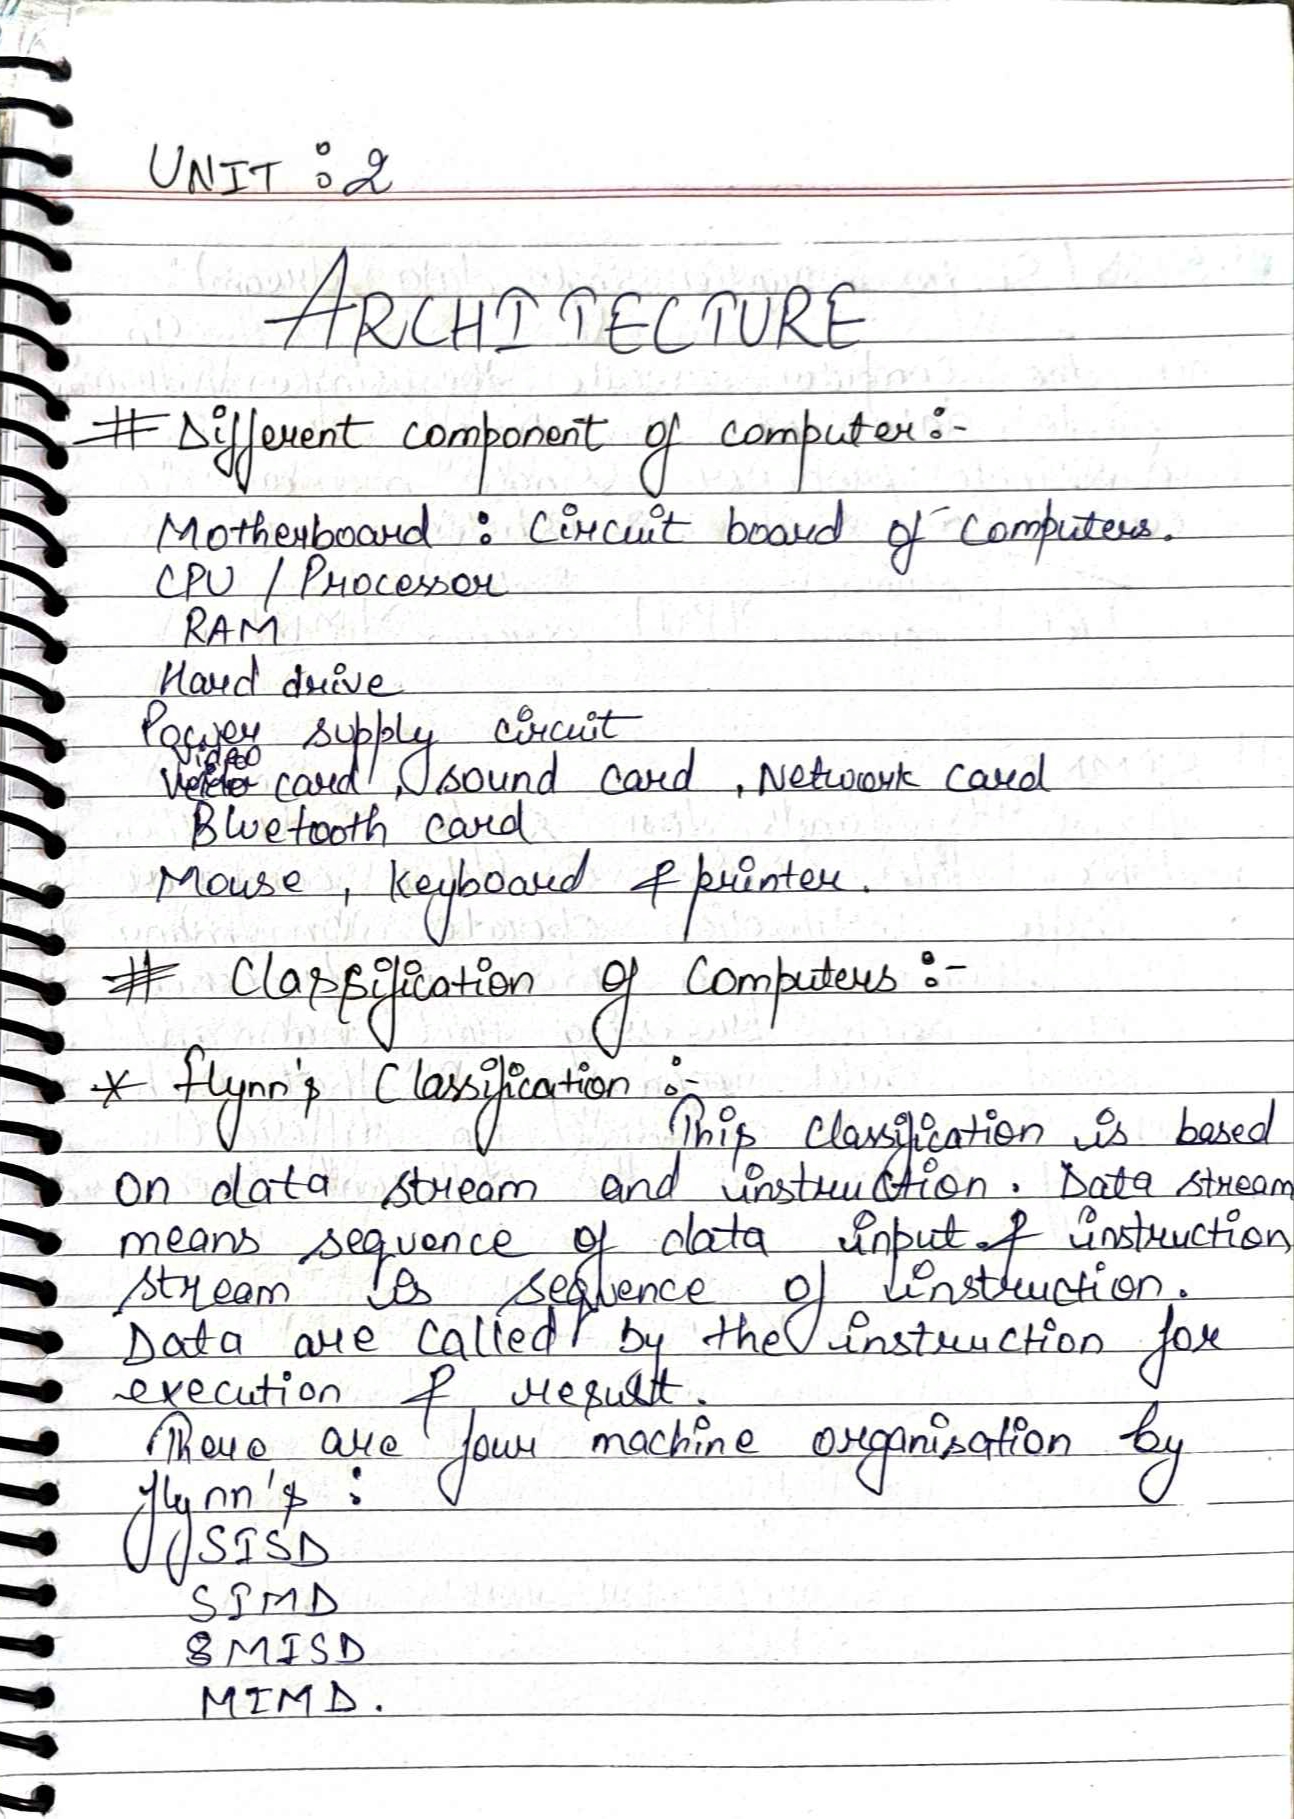 UNIT : 2
ARCHITECTURE
# Different component of computer :-
Motherboard : Circuit board of computers.
CPU / Processor
RAM
Hard drive
Power supply circuit
Video
card, sound card, Network card
Bluetooth card
Mouse, keyboard & printer.
# Classification of Computers :-
* flynn's Classification :-
This classification is based
on data stream and instruction. Data stream
means sequence of data input & instruction
stream is sequence of instruction.
Data are called by the instruction for
execution & result.
There are four machine organisation by
flynn's :
SISD
SIMD
MISD
MIMD.